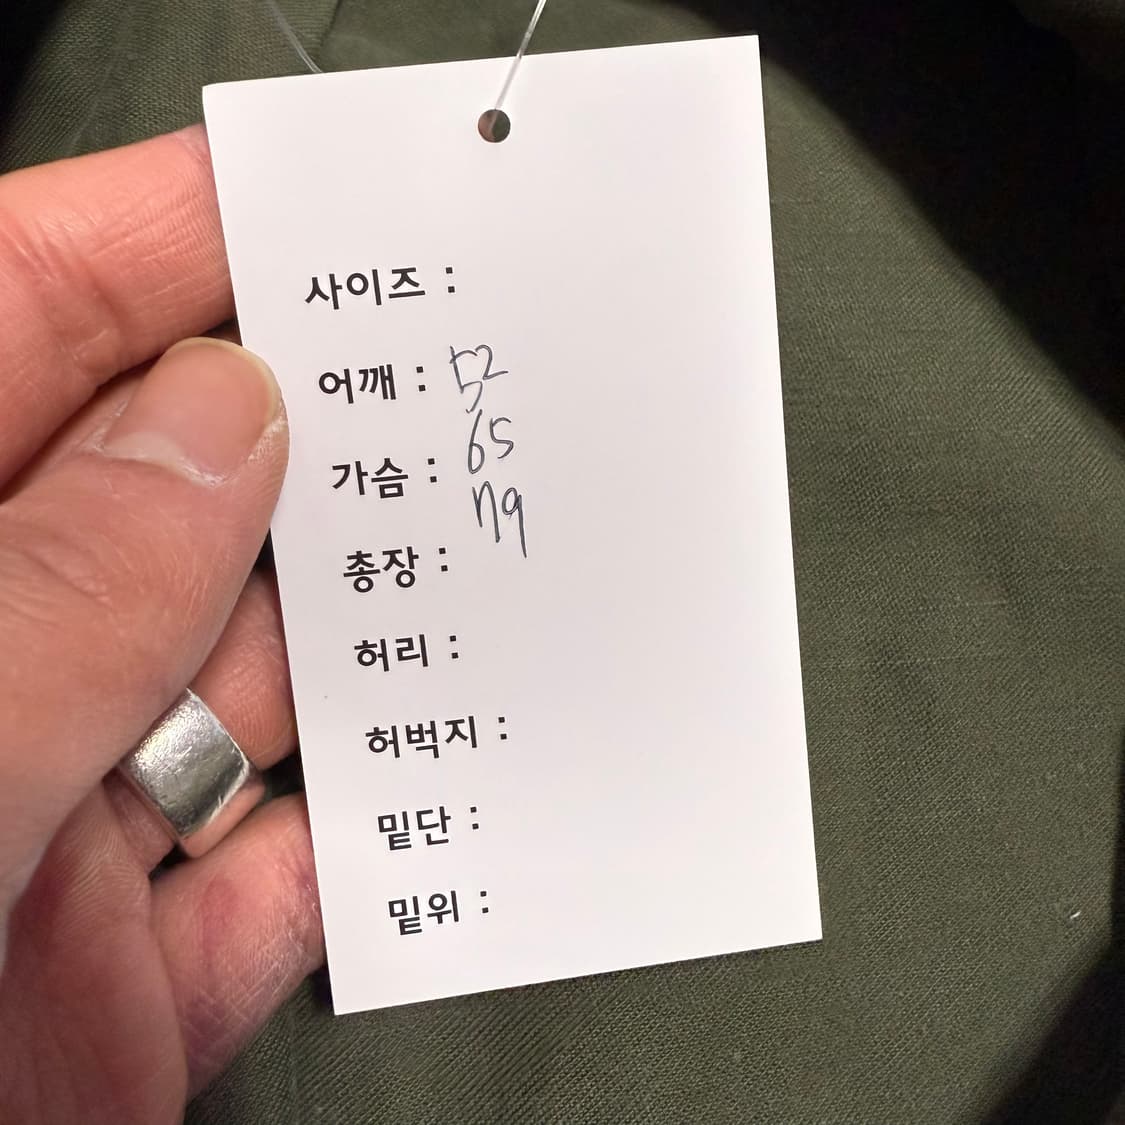 사이즈 :
어깨 : 52
가슴 : 65
총장 : 79
허리 :
허벅지 :
밑단 :
밑위 :